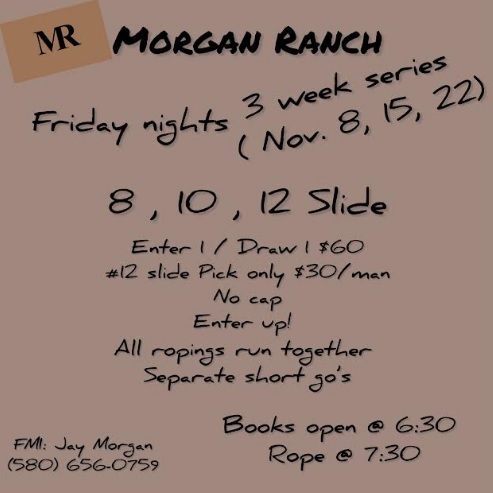 MR
Morgan Ranch
Friday nights 3 week series
( Nov. 8, 15, 22)
8 , 10 , 12 Slide
Enter 1 / Draw 1 $60
#12 slide Pick only $30/man
No cap
Enter up!
All ropings run together
Separate short go's
Books open @ 6:30
Rope @ 7:30
FMI: Jay Morgan
(580) 656-0759